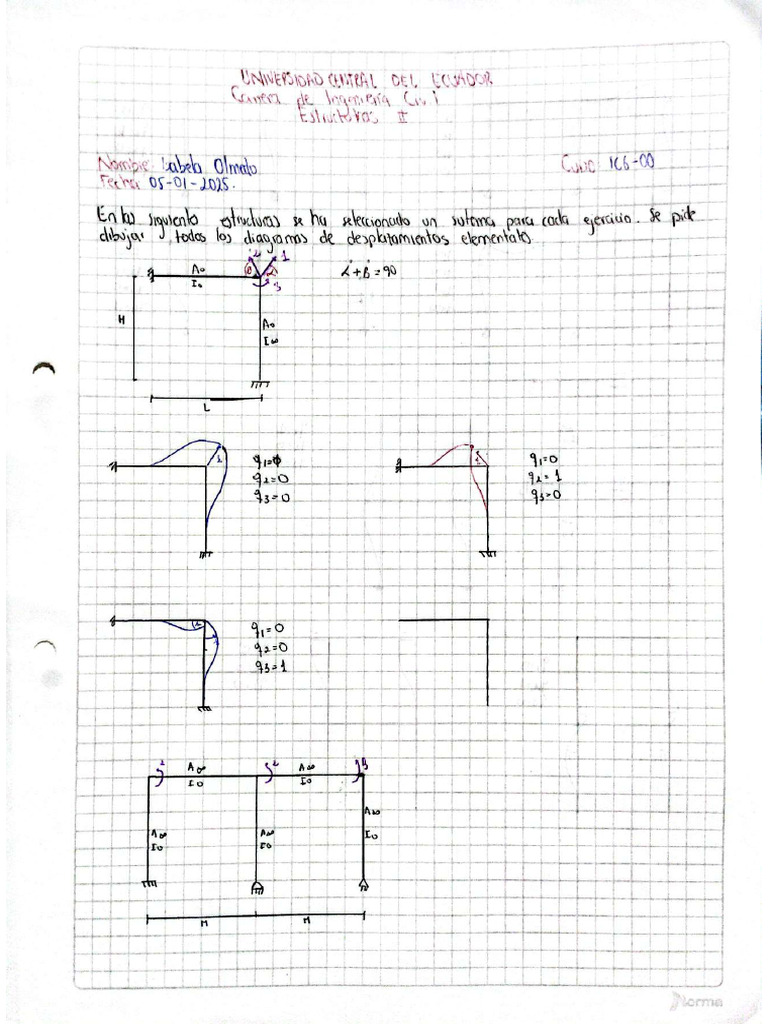 UNIVERSIDAD CENTRAL DEL ECUADOR
Carrera de Ingeniería Civil
Estructuras II
Nombre: Isabela Olmedo
Curso: IC6-00
Fecha: 05-01-2025.
En las siguiente estructuras se ha seleccionado un sistema para cada ejercicio. Se pide
dibujar todos los diagramas de desplazamientos elementales
A0
I0
2
1
β
α
3
α+β=90
H
A0
I∞
L
1
q1=1
q2=0
q3=0
1
q1=0
q2=1
q3=0
q1=0
q2=0
q3=1
A∞
I0
2
A∞
I0
A∞
I0
A∞
I0
A∞
I0
H
H
Norma